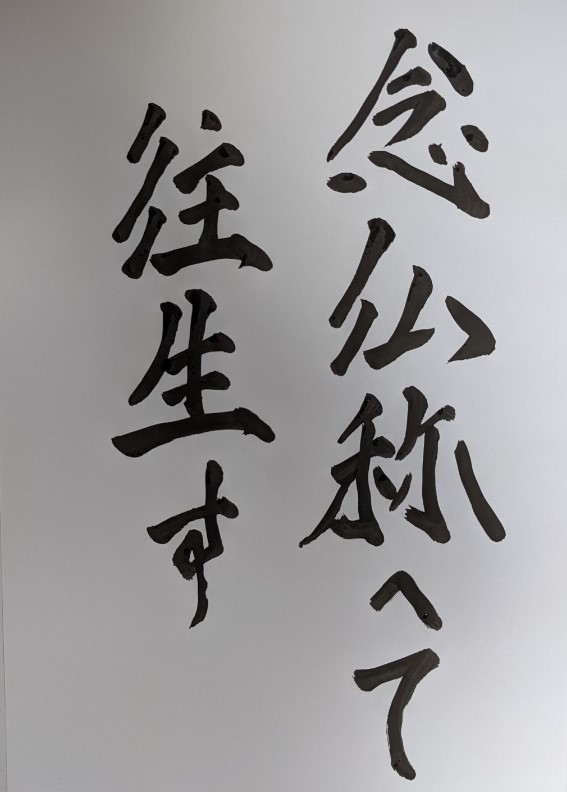 念仏称へて
往生す